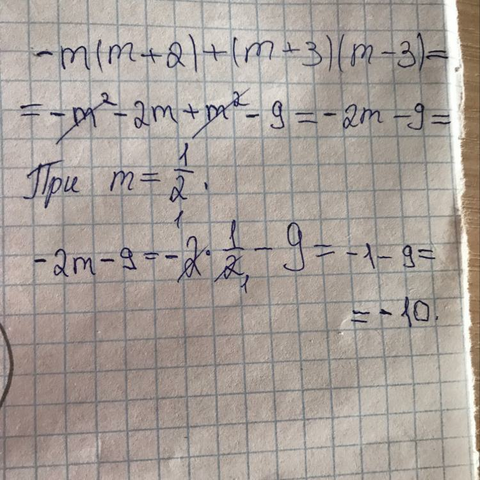 -m(m+2)+(m+3)(m-3)=
= -m²-2m+m²-9=-2m-9=
При m=1/2.
-2m-9=-2·1/2-9=-1-9=
=-10.